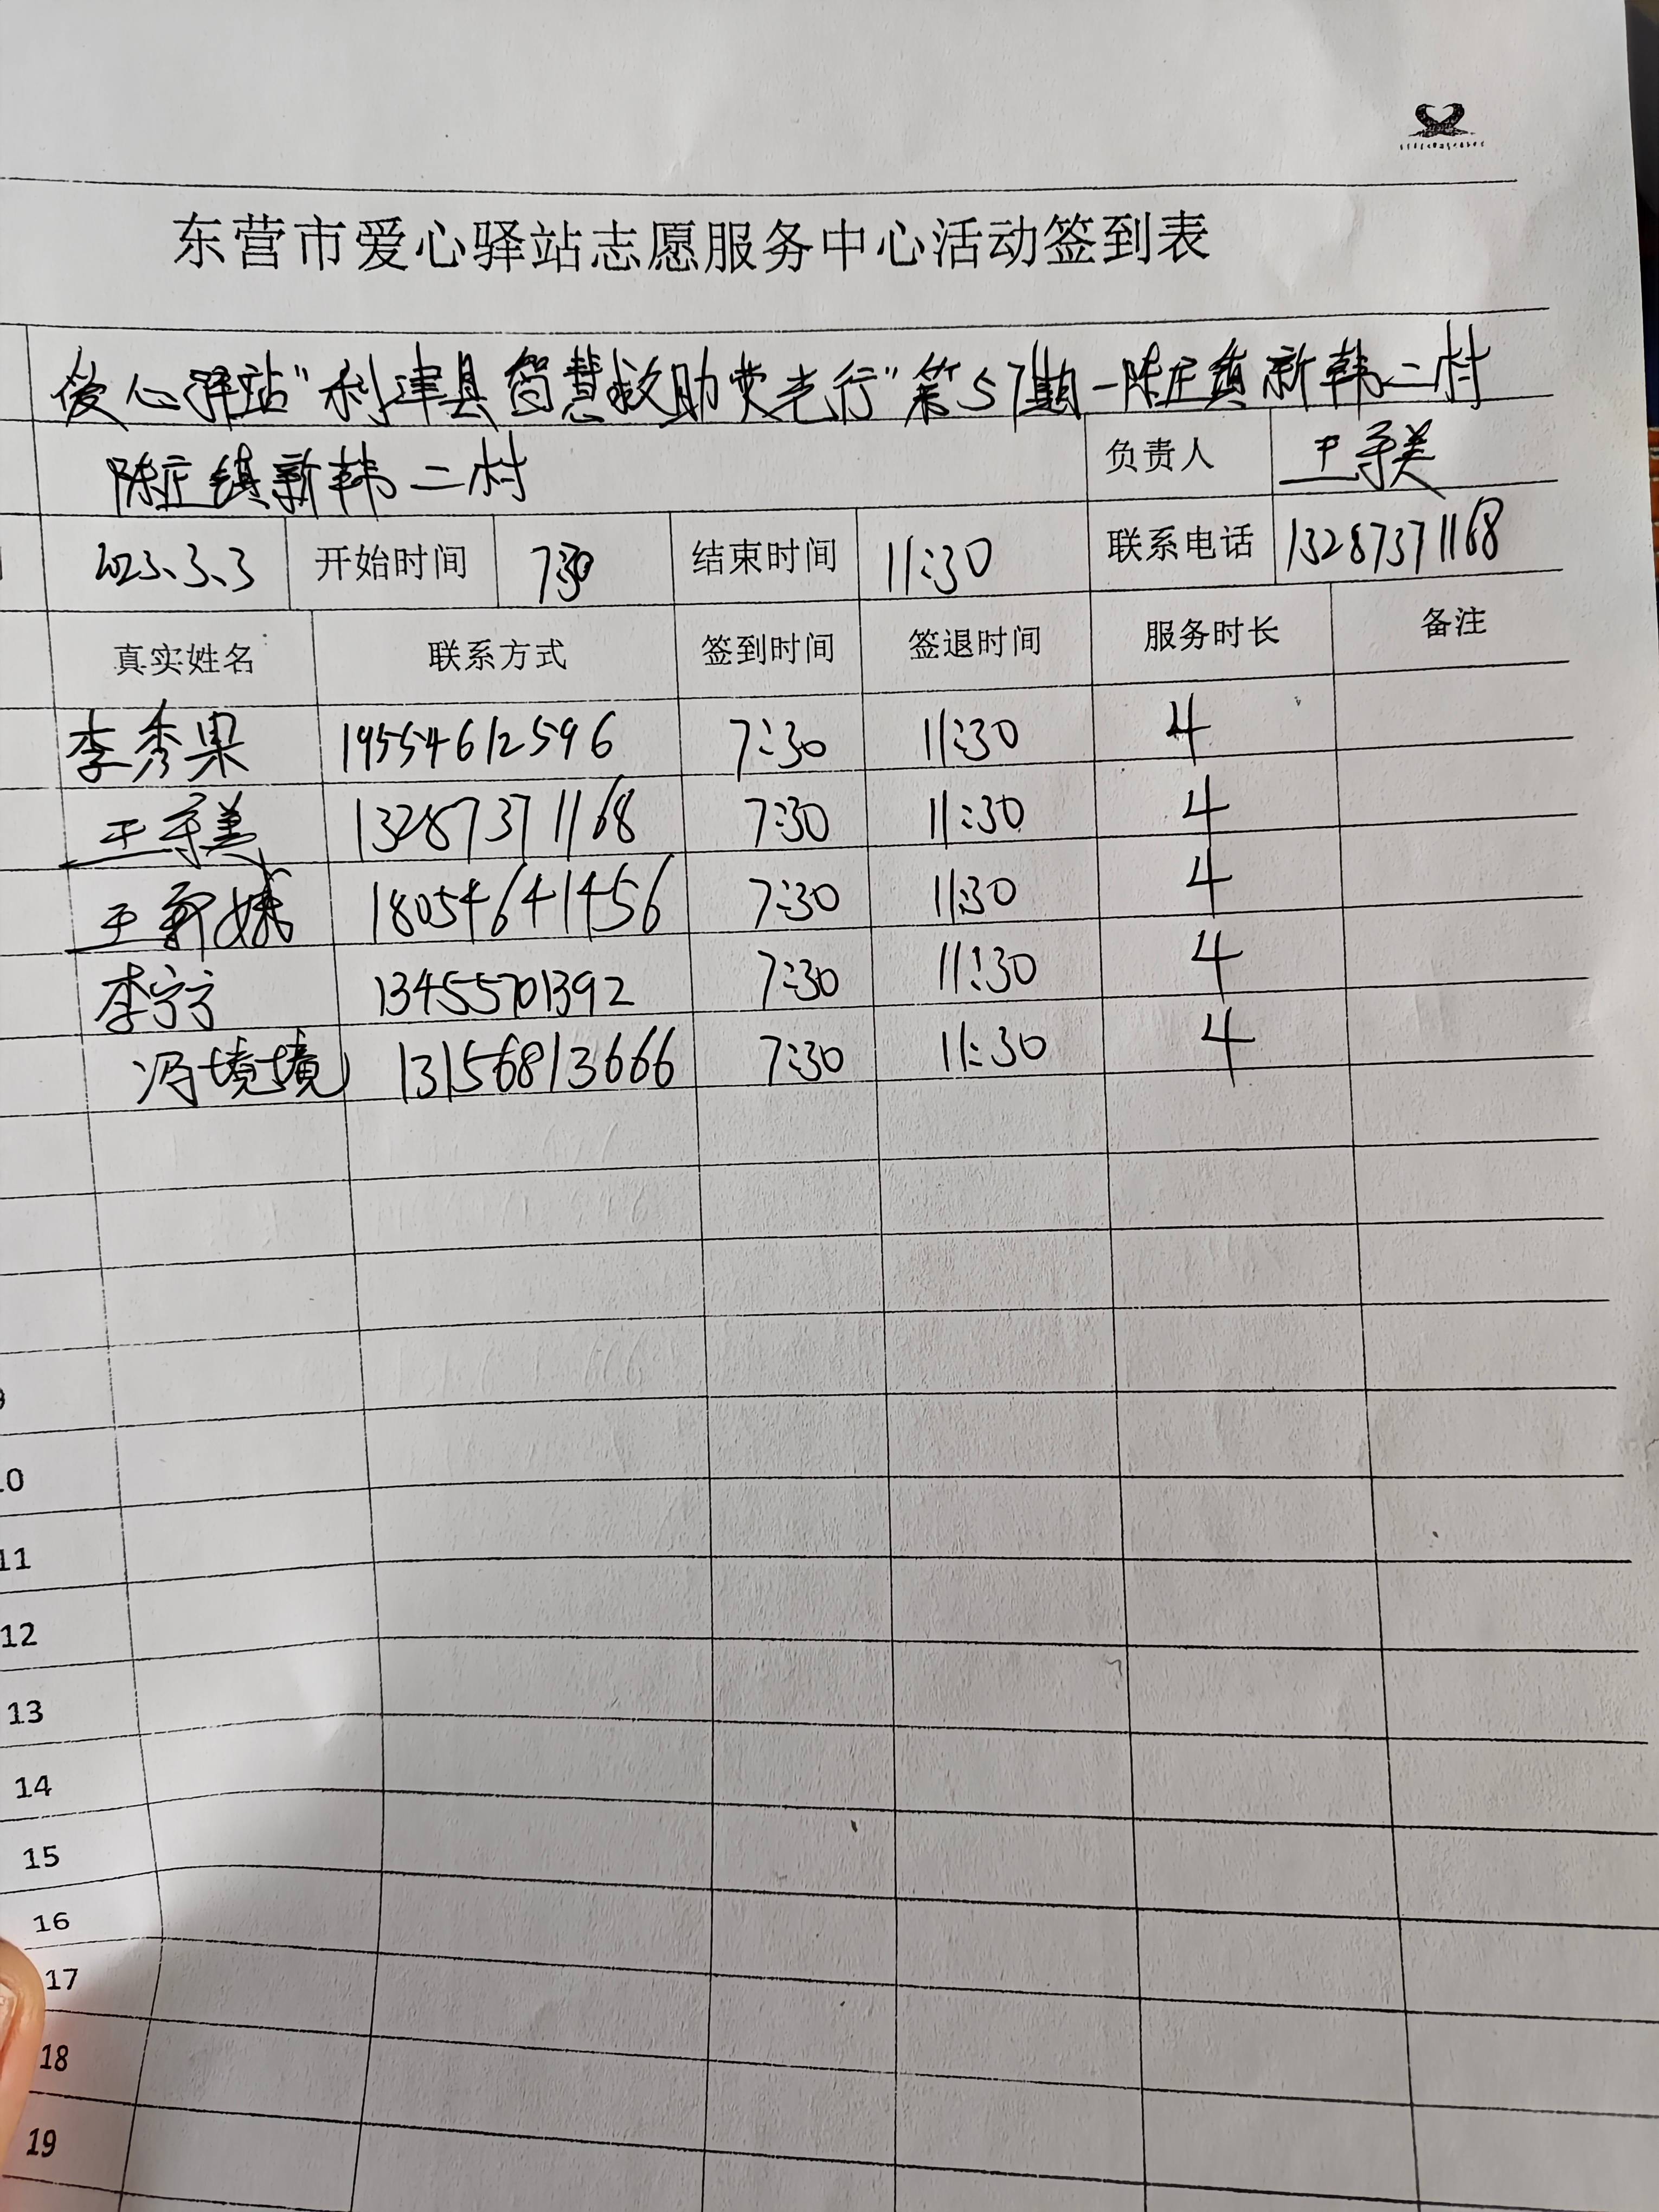 东营市爱心驿站志愿服务中心活动签到表
爱心驿站"利津县智慧救助荧光行"第57期-陈庄镇新韩二村
陈庄镇新韩二村 负责人 王守美
2023.3.3 开始时间 7:30 结束时间 11:30 联系电话 13287371168
真实姓名 联系方式 签到时间 签退时间 服务时长 备注
李秀果 19554612596 7:30 11:30 4
王守美 13287371168 7:30 11:30 4
王 18054641456 7:30 11:30 4
李宁宁 13455701392 7:30 11:30 4
冯境境 13156813666 7:30 11:30 4
10
11
12
13
14
15
16
17
18
19